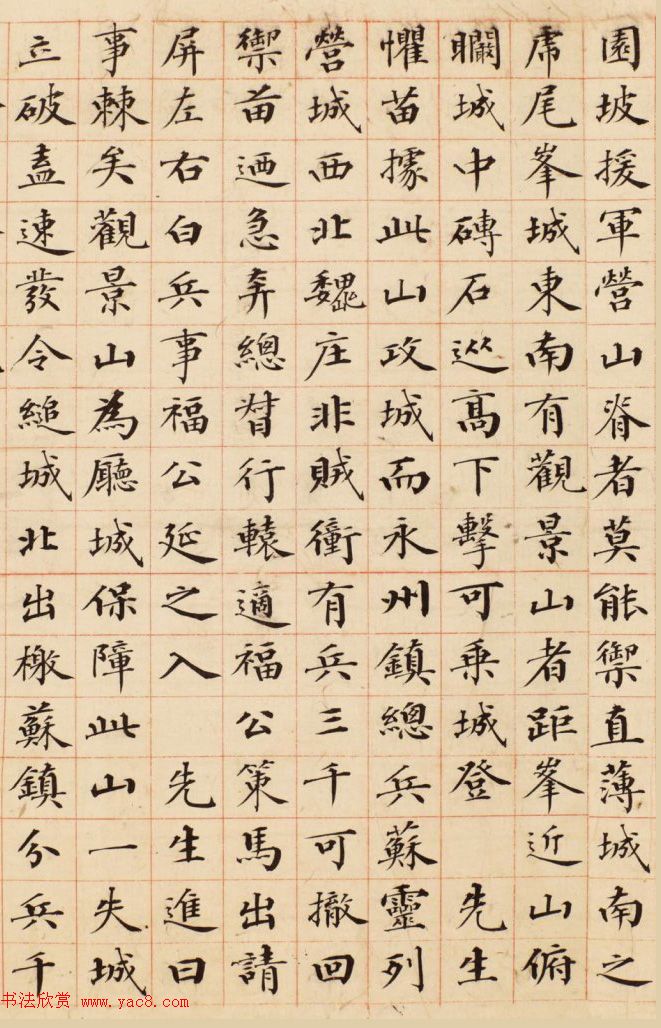 園坡援軍營山脊者莫能禦直薄城南之
虎尾峯城東南有觀景山者距峯近山俯
矙城中磚石從高下擊可乗城登 先生
懼苗據此山攻城而永州鎮總兵蘇靈列
營城西北魏庄非賊衝有兵三千可撤回
禦苗迺急奔總督行轅適福公策馬出請
屏左右白兵事福公延之入 先生進曰
事棘矣觀景山為廳城保障此山一失城
立破盍速發令縋城北出檄蘇鎮分兵千
书法欣赏 www.yac8.com